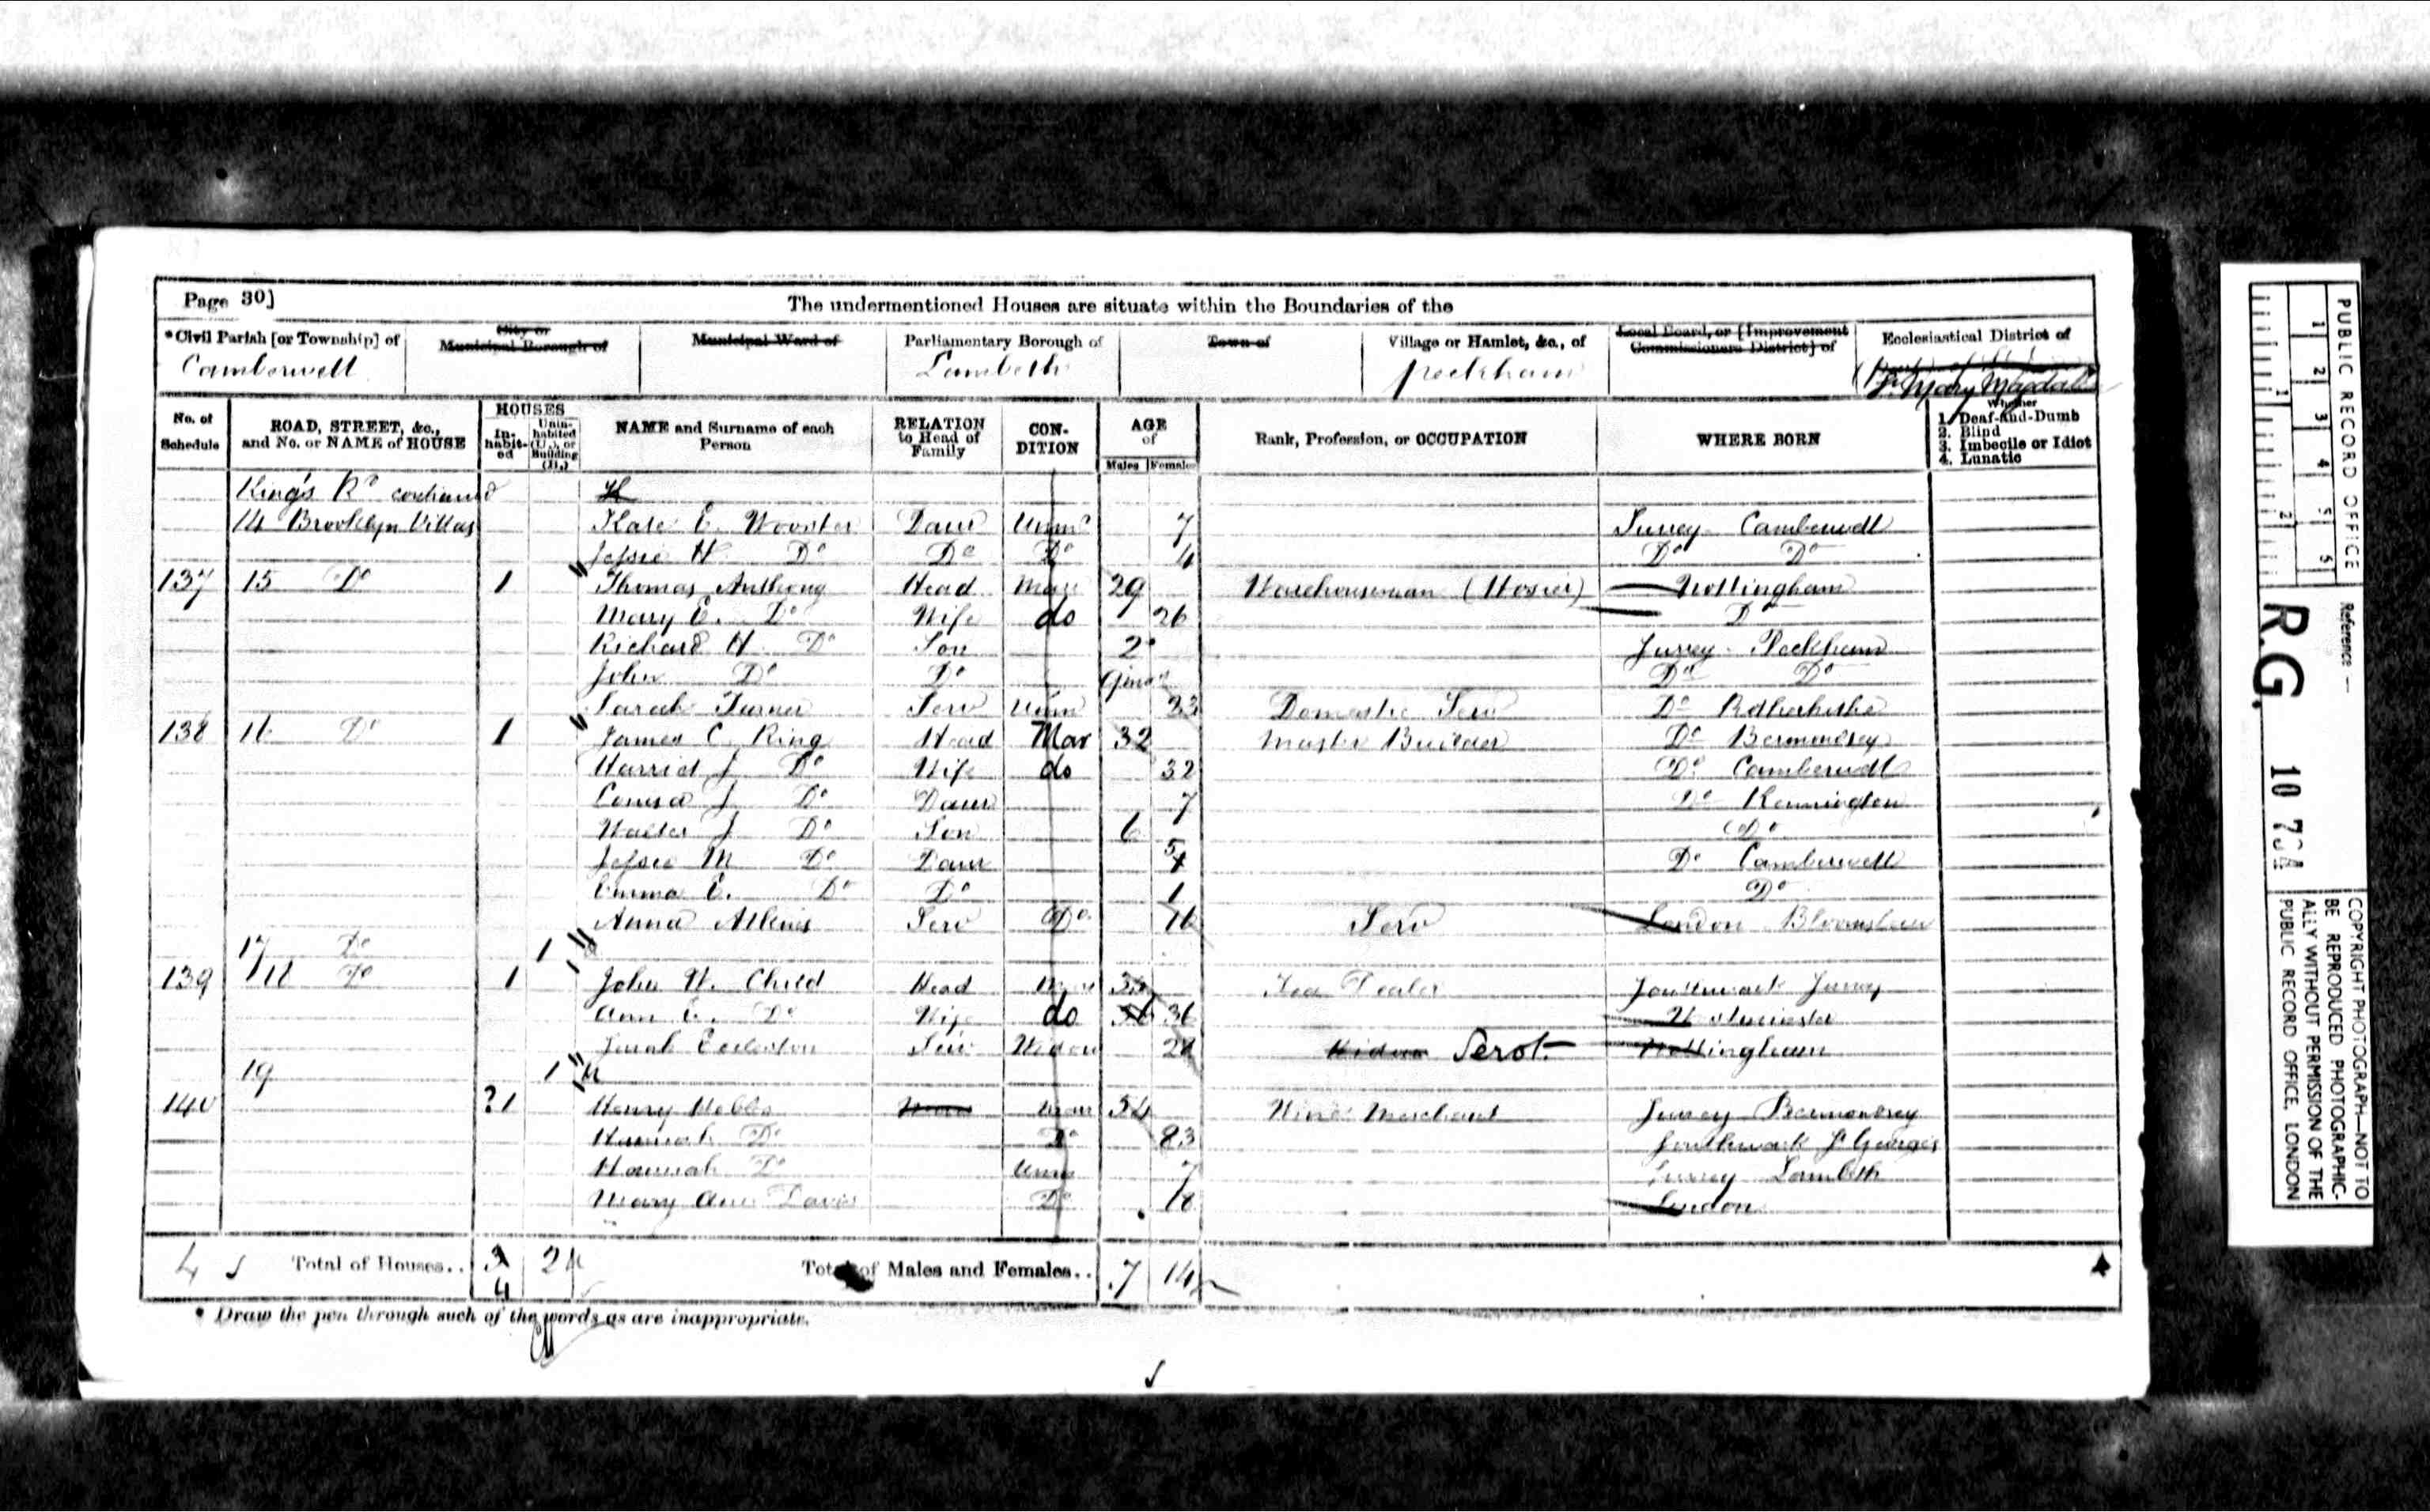 Page 30]
The undermentioned Houses are situate within the Boundaries of the
*Civil Parish [or Township] of
Camberwell
City or Municipal Borough of
Municipal Ward of
Parliamentary Borough of
Lambeth
Town of
Village or Hamlet, &c., of
Peckham
Local Board, or [Improvement Commissioners District] of
Ecclesiastical District of
St Mary Magdalen
No. of Schedule
ROAD, STREET, &c., and No. or NAME of HOUSE
HOUSES
In-habit-ed
Unin-habited (U.), or Building (B.)
NAME and Surname of each Person
RELATION to Head of Family
CON-DITION
AGE of
Males Females
Rank, Profession, or OCCUPATION
WHERE BORN
Whether
1. Deaf-and-Dumb
2. Blind
3. Imbecile or Idiot
4. Lunatic
King's Rd continued
14 Brooklyn Villas Kate E. Wooster Daur Unmd 7 Surrey Camberwell
Jessie H Do Do Do 4 Do Do
137 15 Do 1 Thomas Anthony Head Mar 29 Warehouseman (Hosier) Nottingham
Mary E. Do Wife do 26 Do
Richard H Do Son 2 Surrey Peckham
John Do Do 9 mos Do Do
Sarah Turner Serv Unm 23 Domestic Serv Do Rotherhithe
138 16 Do 1 James C. King Head Mar 32 Master Builder Do Bermondsey
Harriet J Do Wife do 32 Do Camberwell
Louisa J Do Daur 7 Do Kennington
Walter J Do Son 6 Do
Jessie M Do Daur 5 Do Camberwell
Emma E. Do Do 1 Do
Anna Atkins Serv Do 16 Serv London Bloomsbury
17 Do 1
139 18 Do 1 John W. Child Head Mar Tea Dealer Southwark Surrey
Ann E. Do Wife do 36 Westminster
Sarah Serv Widow Widow Servt Nottingham
19 1
140 ?1 Henry Hobbs Head Mar 54 Wine Merchant Surrey Bermondsey
Hannah Do Do Southwark St Georges
Hannah Do Unm 7 Surrey Lambeth
Mary Ann Davis Do 18 London
4 Total of Houses.. 3 4 2 Total of Males and Females.. 7 14
* Draw the pen through such of the words as are inappropriate.
PUBLIC RECORD OFFICE
1 2 3 4 5 6
1 2
Reference —
R.G. 10 734
COPYRIGHT PHOTOGRAPH—NOT TO BE REPRODUCED PHOTOGRAPHIC-ALLY WITHOUT PERMISSION OF THE PUBLIC RECORD OFFICE, LONDON